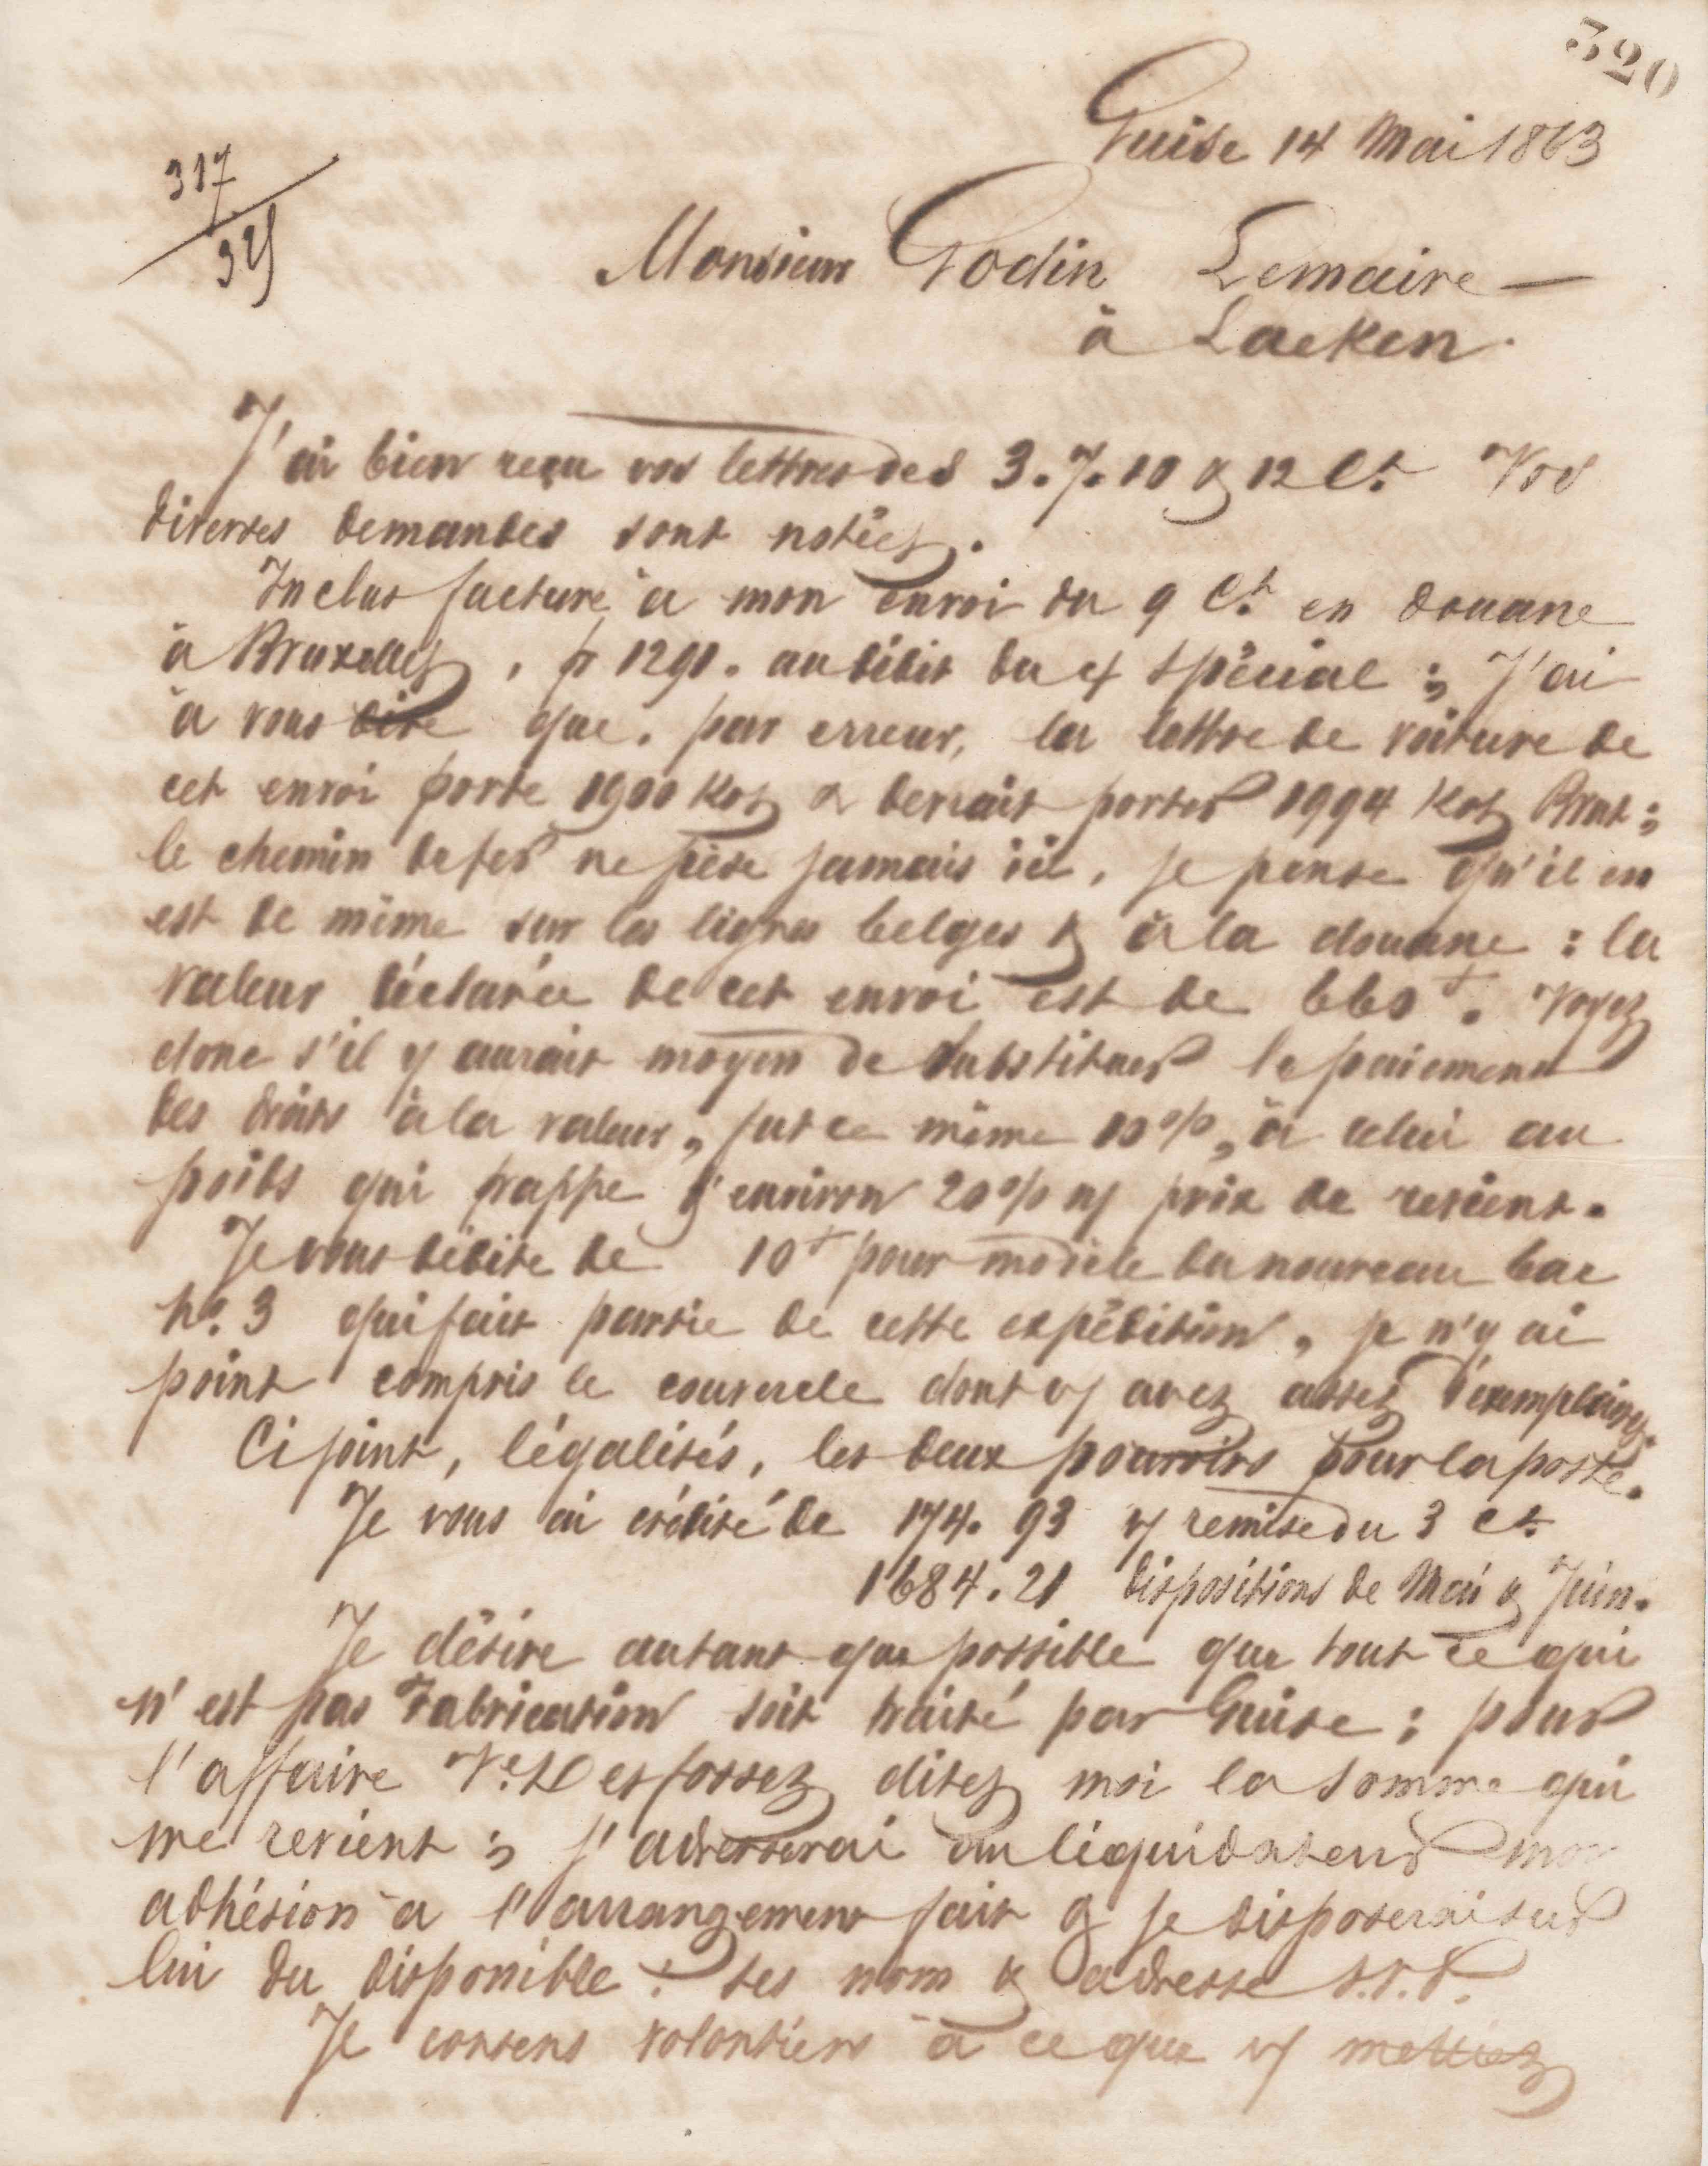 320
Guise 14 Mai 1863
317
Monsieur Godin Lemaire
à Laeken.
J'ai bien reçu vos lettres des 3. 7. 10 & 12 Ct Vos
diverses demandes sont notées.
Inclus facture à mon envoi du 9 Ct en douane
à Bruxelles, 1291. au débit du spécial ; J'ai
à vous dire que, par erreur, la lettre de voiture de
cet envoi porte 1900 Kos & devrait porter 1994 Kos Brut ;
le chemin de fer ne pèse jamais ici, je pense qu'il en
est de même sur les lignes belges & à la douane : la
valeur déclarée de cet envoi est de 660 f. Voyez
donc s'il y aurait moyen de substituer le paiement
des droits à la valeur, fut ce même 10 %, à celui au
poids qui frappe d'environ 20 % prix de revient.
Je vous débite de 10 f pour modèle du nouveau bac
No. 3 qui fait partie de cette expédition, je n'y ai
point compris le couvercle dont vs avez assez d'exemplaires.
Ci joint, légalisés, les deux pouvoirs pour la poste.
Je vous ai crédité de 174. 93 vs remise du 3 Ct
1684. 21 dispositions de Mai & Juin.
Je désire autant que possible que tout ce qui
n'est pas Fabrication soit traité par Guise : pour
l'affaire Ve Desfossez dites moi la somme qui
me revient ; j'adresserai au liquidateur mon
adhésion à l'arrangement fait & je disposerai sur
lui du disponible : ses nom & adresse s.v.p.
Je consens volontiers à ce que vs mettiez